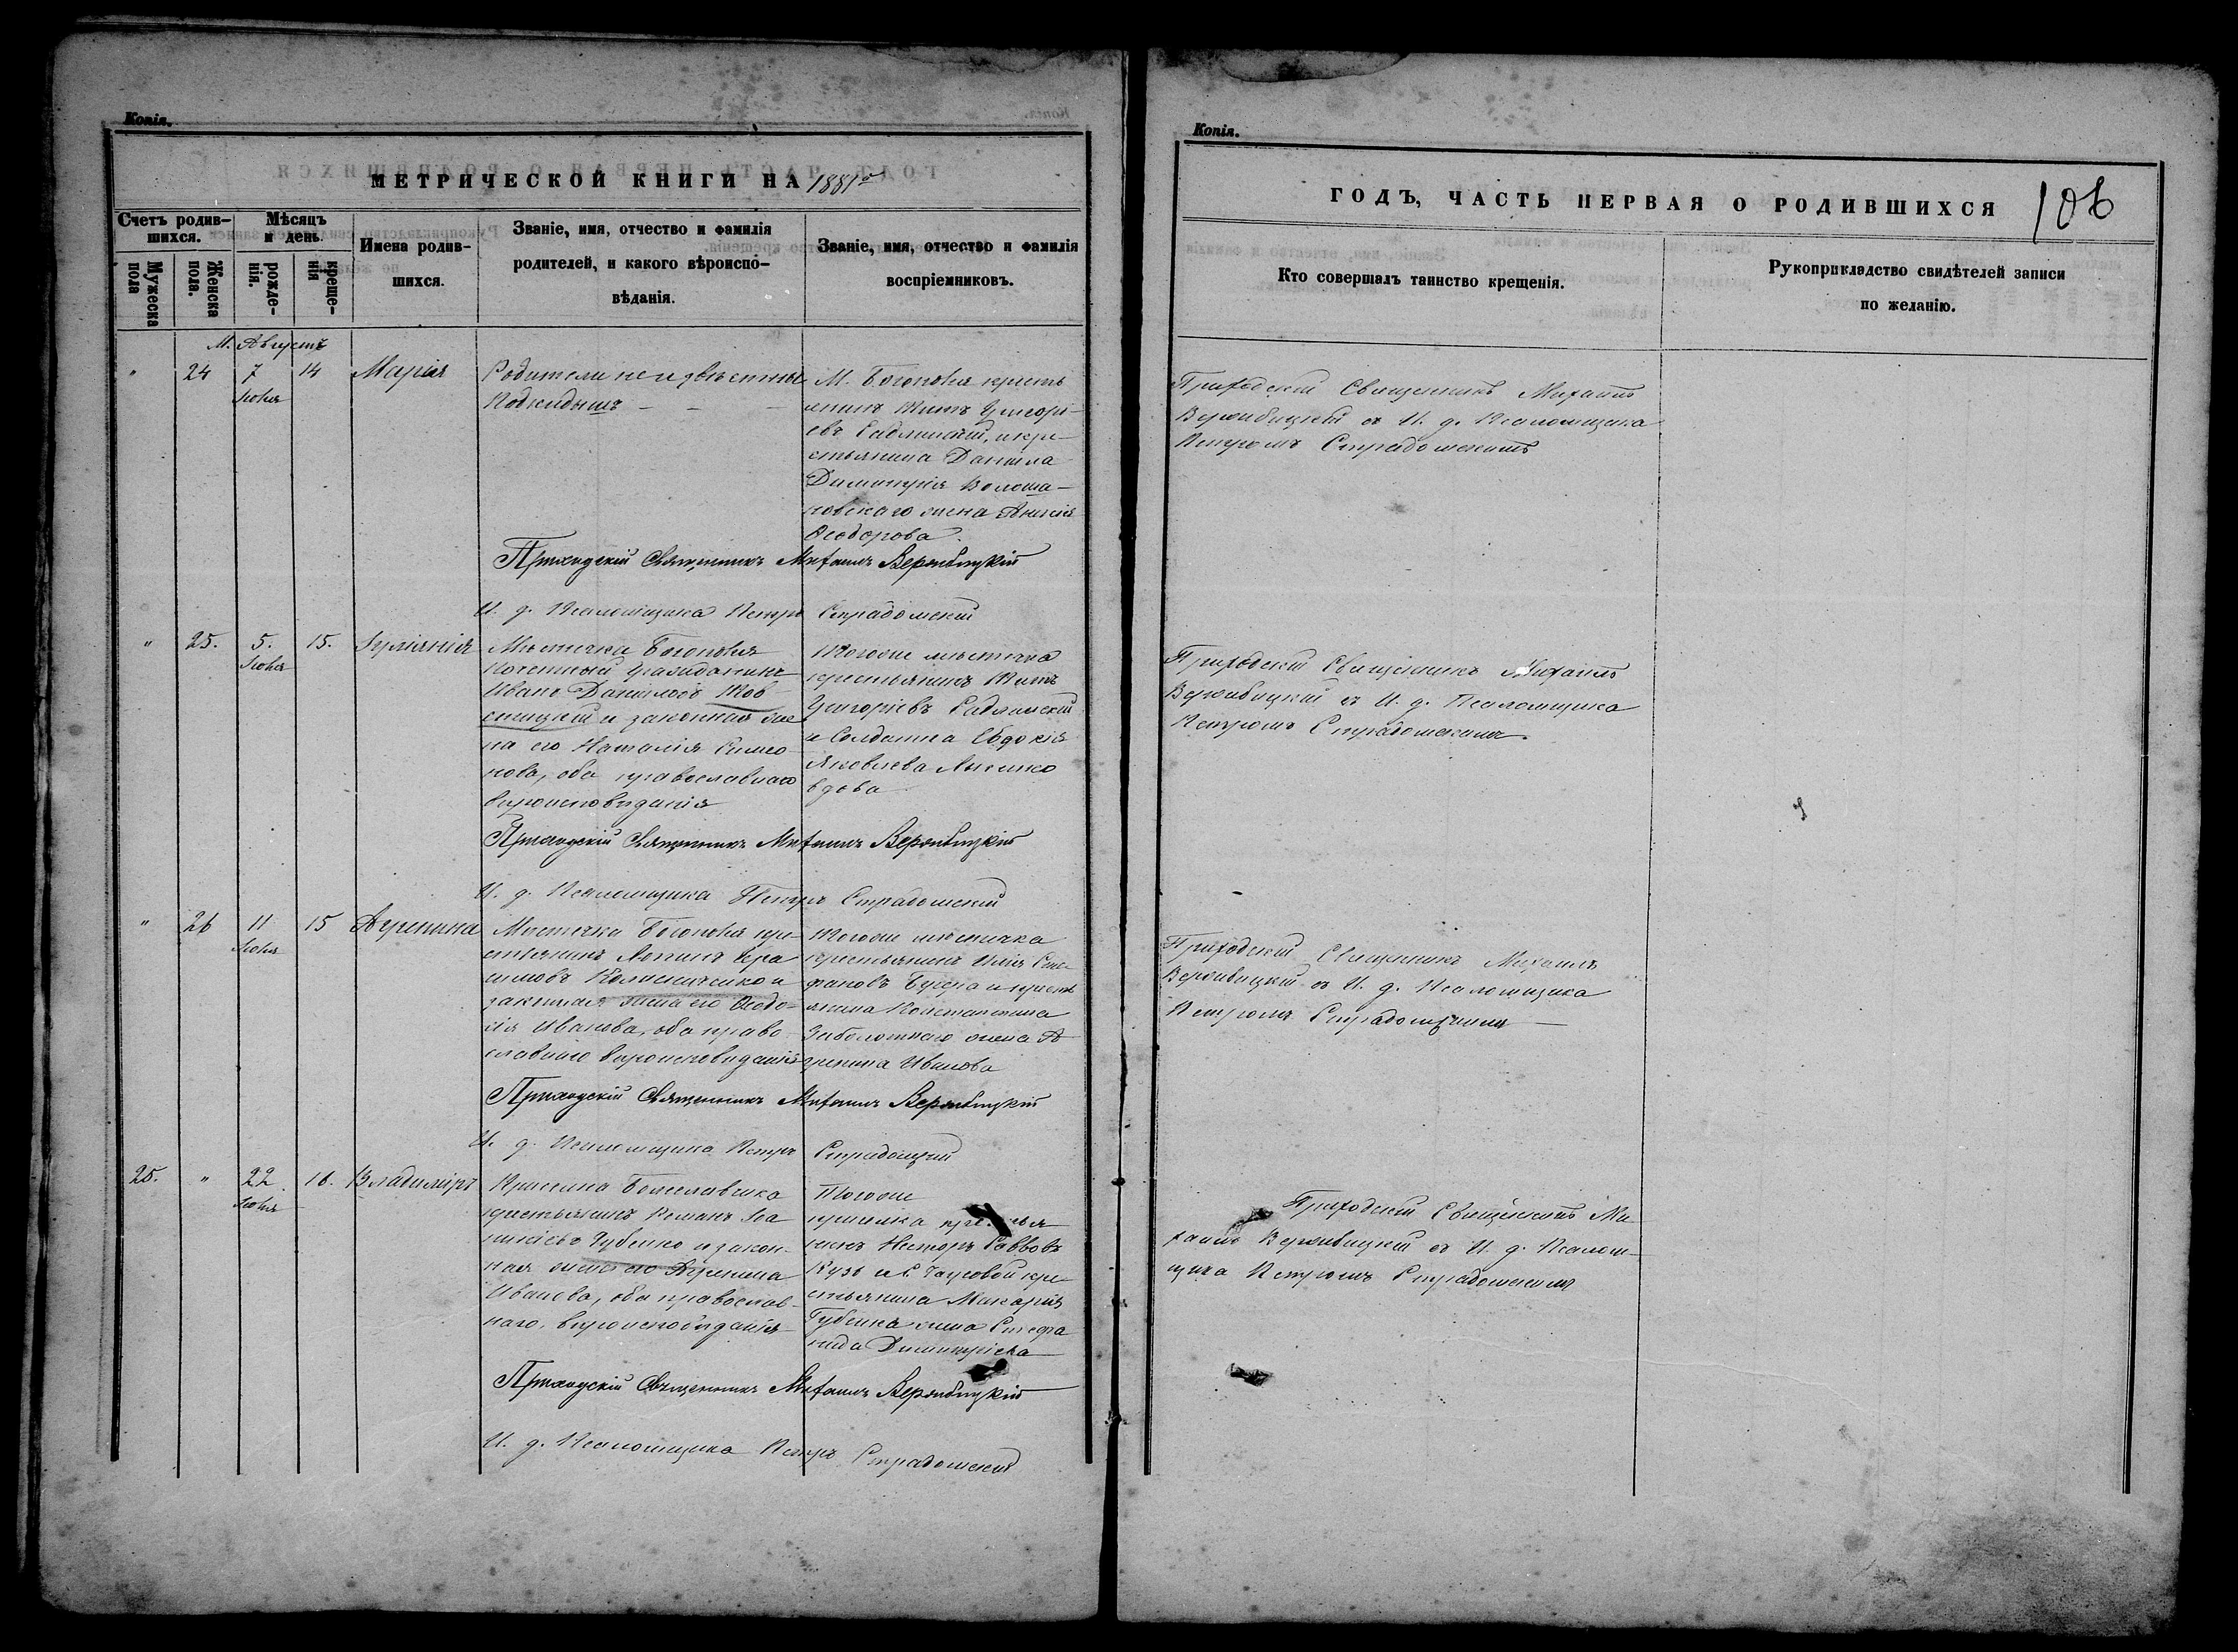 Копія.
МЕТРИЧЕСКОЙ КНИГИ НА 1881 о
Счетъ родив-
шихся.
Мужеска пола
Женска пола.
Мѣсяцъ
и день.
рожде-
нія.
креще-
нія
Имена родив-
шихся.
Званіе, имя, отчество и фамилія
родителей, и какого вѣроиспо-
вѣданія.
Званіе, имя, отчество и фамилія
воспріемниковъ.
М. Августъ
" 24 7 14 Марія
Родители неизвѣстны
Подкидышъ - - -
М. Богополя кресть
янинъ Титъ Григорі-
евъ Радлинскій, и кре-
стьянина Даніила
Димитрія Волоша-
новскаго жена Анисія
Ѳеодорова.
Приходскій Священникъ Михаилъ Вержбицкій
И. д. Псаломщика Петръ Страдомскій
" 25. 5. 15. Іуліанія
Мѣстечка Богополя
Почетный Гражданинъ
Иванъ Даниловъ
и законная же
на его Наталія Симео
нова, оба православнаго
вѣроисповѣданія
Тогоже мѣстечка
крестьянинъ Титъ
Григоріевъ Радлинскій
и Солдатка Евдокія
Яковлева
вдова
Приходскій Священникъ Михаилъ Вержбицкій
И. д. Псаломщика Петръ Страдомскій
" 26 11 15 Агрипина
Мѣстечка Богополя кре-
стьянинъ Логинъ Гера
симовъ и
законная жена его Ѳеодо-
сія Иванова, оба право-
славнаго вѣроисповѣданія
Тогоже мѣстечка
крестьянинъ Илія Сте-
фановъ и кресть
янина Константина
Заболотнаго жена А-
грипина Иванова
Приходскій Священникъ Михаилъ Вержбицкій
И. д. Псаломщика Петръ Страдомскій
25. " 22 16. Владиміръ
крестьянинъ Романъ Іоа
никіевъ Губенко и закон-
ная жена его Агрипина
Иванова, оба православ-
наго вѣроисповѣданія
Тогоже
нинъ Несторъ Савовъ
кре-
стьянина Макарія
Губенка жена Стефа
нида Димитріева
Приходскій Священникъ Михаилъ Вержбицкій
И. д. Псаломщика Петръ Страдомскій
Копія.
ГОДЪ, ЧАСТЬ ПЕРВАЯ О РОДИВШИХСЯ
106
Кто совершалъ таинство крещенія.
Рукоприкладство свидѣтелей записи
по желанію.
Приходскій Священникъ Михаилъ
Вержбицкій съ И. д. Псаломщика
Петромъ Страдомскимъ
Приходскій Священникъ Михаилъ
Вержбицкій съ И. д. Псаломщика
Петромъ Страдомскимъ.
Приходскій Священникъ Михаилъ
Вержбицкій съ И. д. Псаломщика
Петромъ Страдомскимъ
Приходскій Священникъ Ми-
хаилъ Вержбицкій съ И. д. Псалом-
щика Петромъ Страдомскимъ